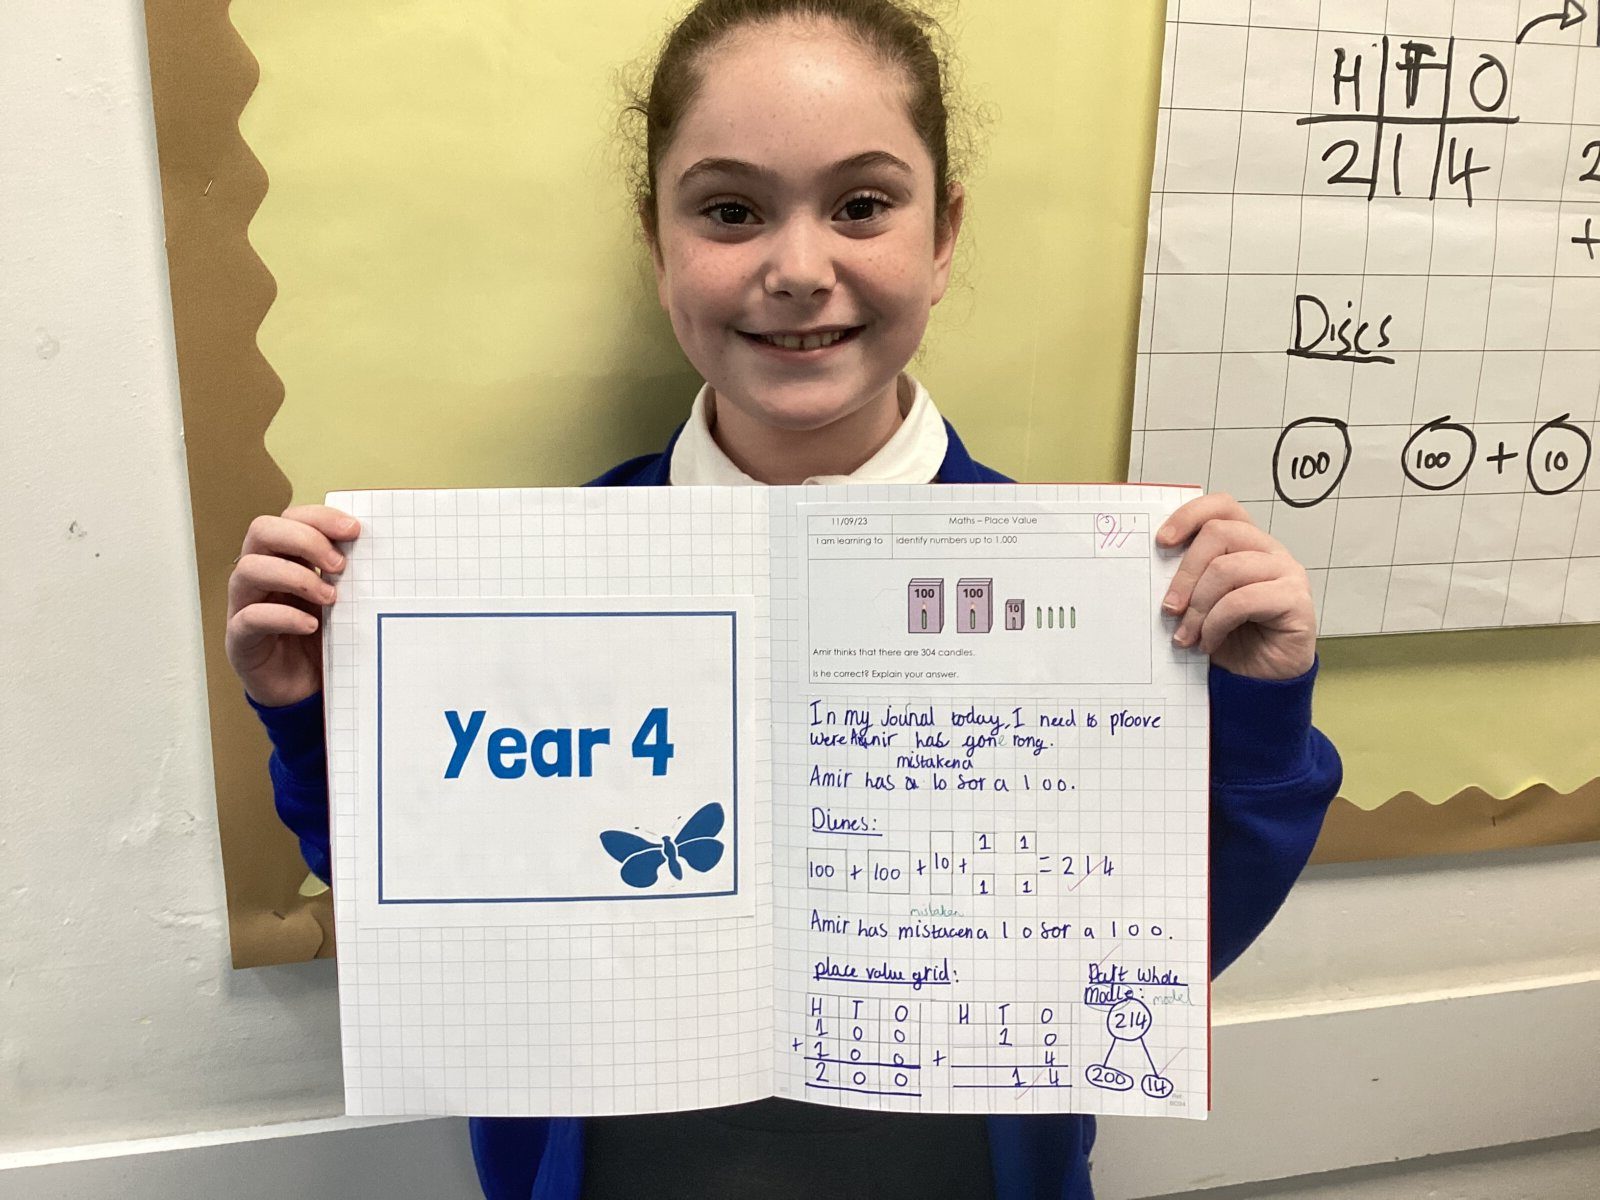 H T O
2 1 4
2
+
Discs
100 100 + 10
Year 4
11/09/23 Maths – Place Value 1
I am learning to identify numbers up to 1,000
100 100 10
Amir thinks that there are 304 candles.
Is he correct? Explain your answer.
In my jounal today, I need to proove
were Amir has gone rong.
mistaken a
Amir has a 10 for a 100.
Dienes:
1 1
100 + 100 + 10 + = 214
1 1
mistaken
Amir has mistacen a 10 for a 100.
place value grid: Part whole
modle: model
H T O H T O 214
1 0 0 1 0
+ 1 0 0 + 4
2 0 0 1 4 200 14